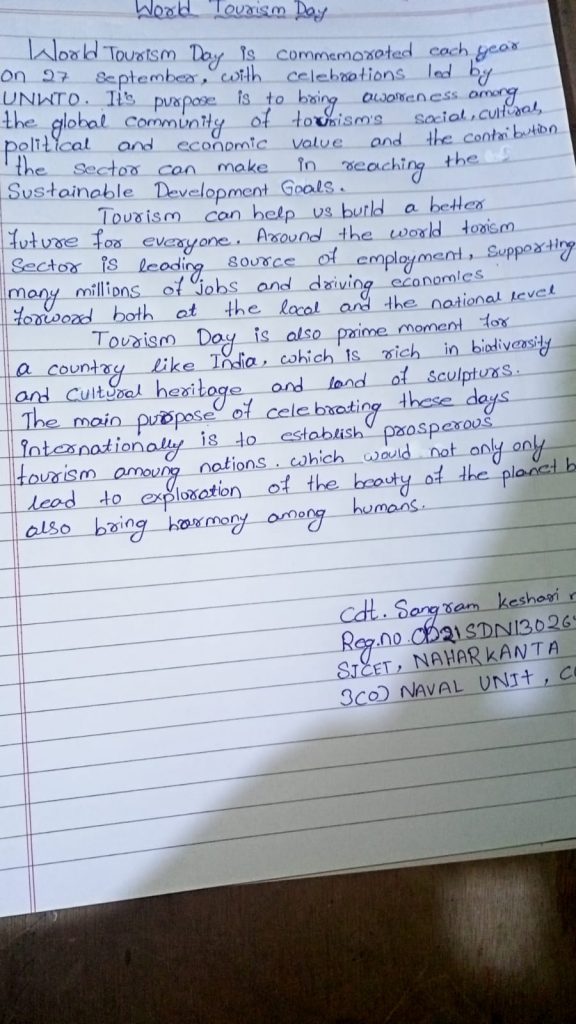 World Tourism Day
World Tourism Day is commemorated each year
on 27 September, with celebrations led by
UNWTO. It's purpose is to bring awareness among
the global community of tourism's social, cultural,
political and economic value and the contribution
the sector can make in reaching the
Sustainable Development Goals.
Tourism can help us build a better
future for everyone. Around the world torism
Sector is leading source of employment, supporting
many millions of jobs and driving economies
forword both at the local and the national level
Tourism Day is also prime moment for
a country like India, which is rich in biodiversity
and cultural heritage and land of sculpturs.
The main purpose of celebrating these days
internationally is to establish prosperous
tourism amoung nations. which would not only only
lead to exploration of the beauty of the planet b
also bring harmony among humans.
Cdt. Sangram keshari
Reg.no. OD21SDN13026
SJCET, NAHARKANTA
3(O) NAVAL UNIt, C